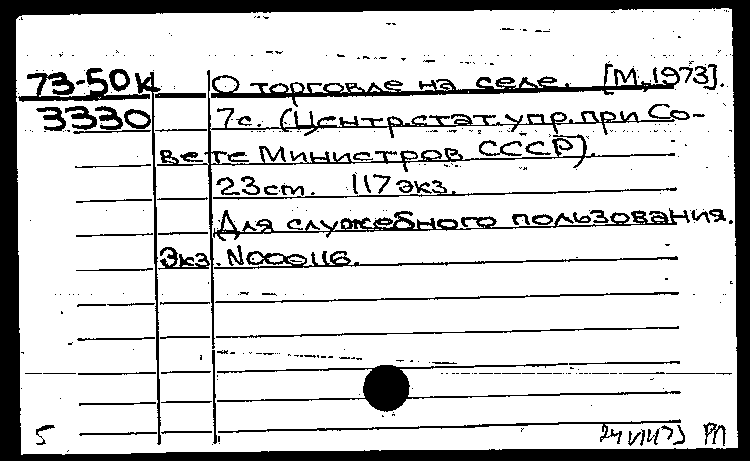 73-50к О торговле на селе. [М., 1973].
3330 7с. (Центр.стат.упр.при Со-
вете Министров СССР).
23cm. 117 экз.
Для служебного пользования.
Экз. N000116.
5